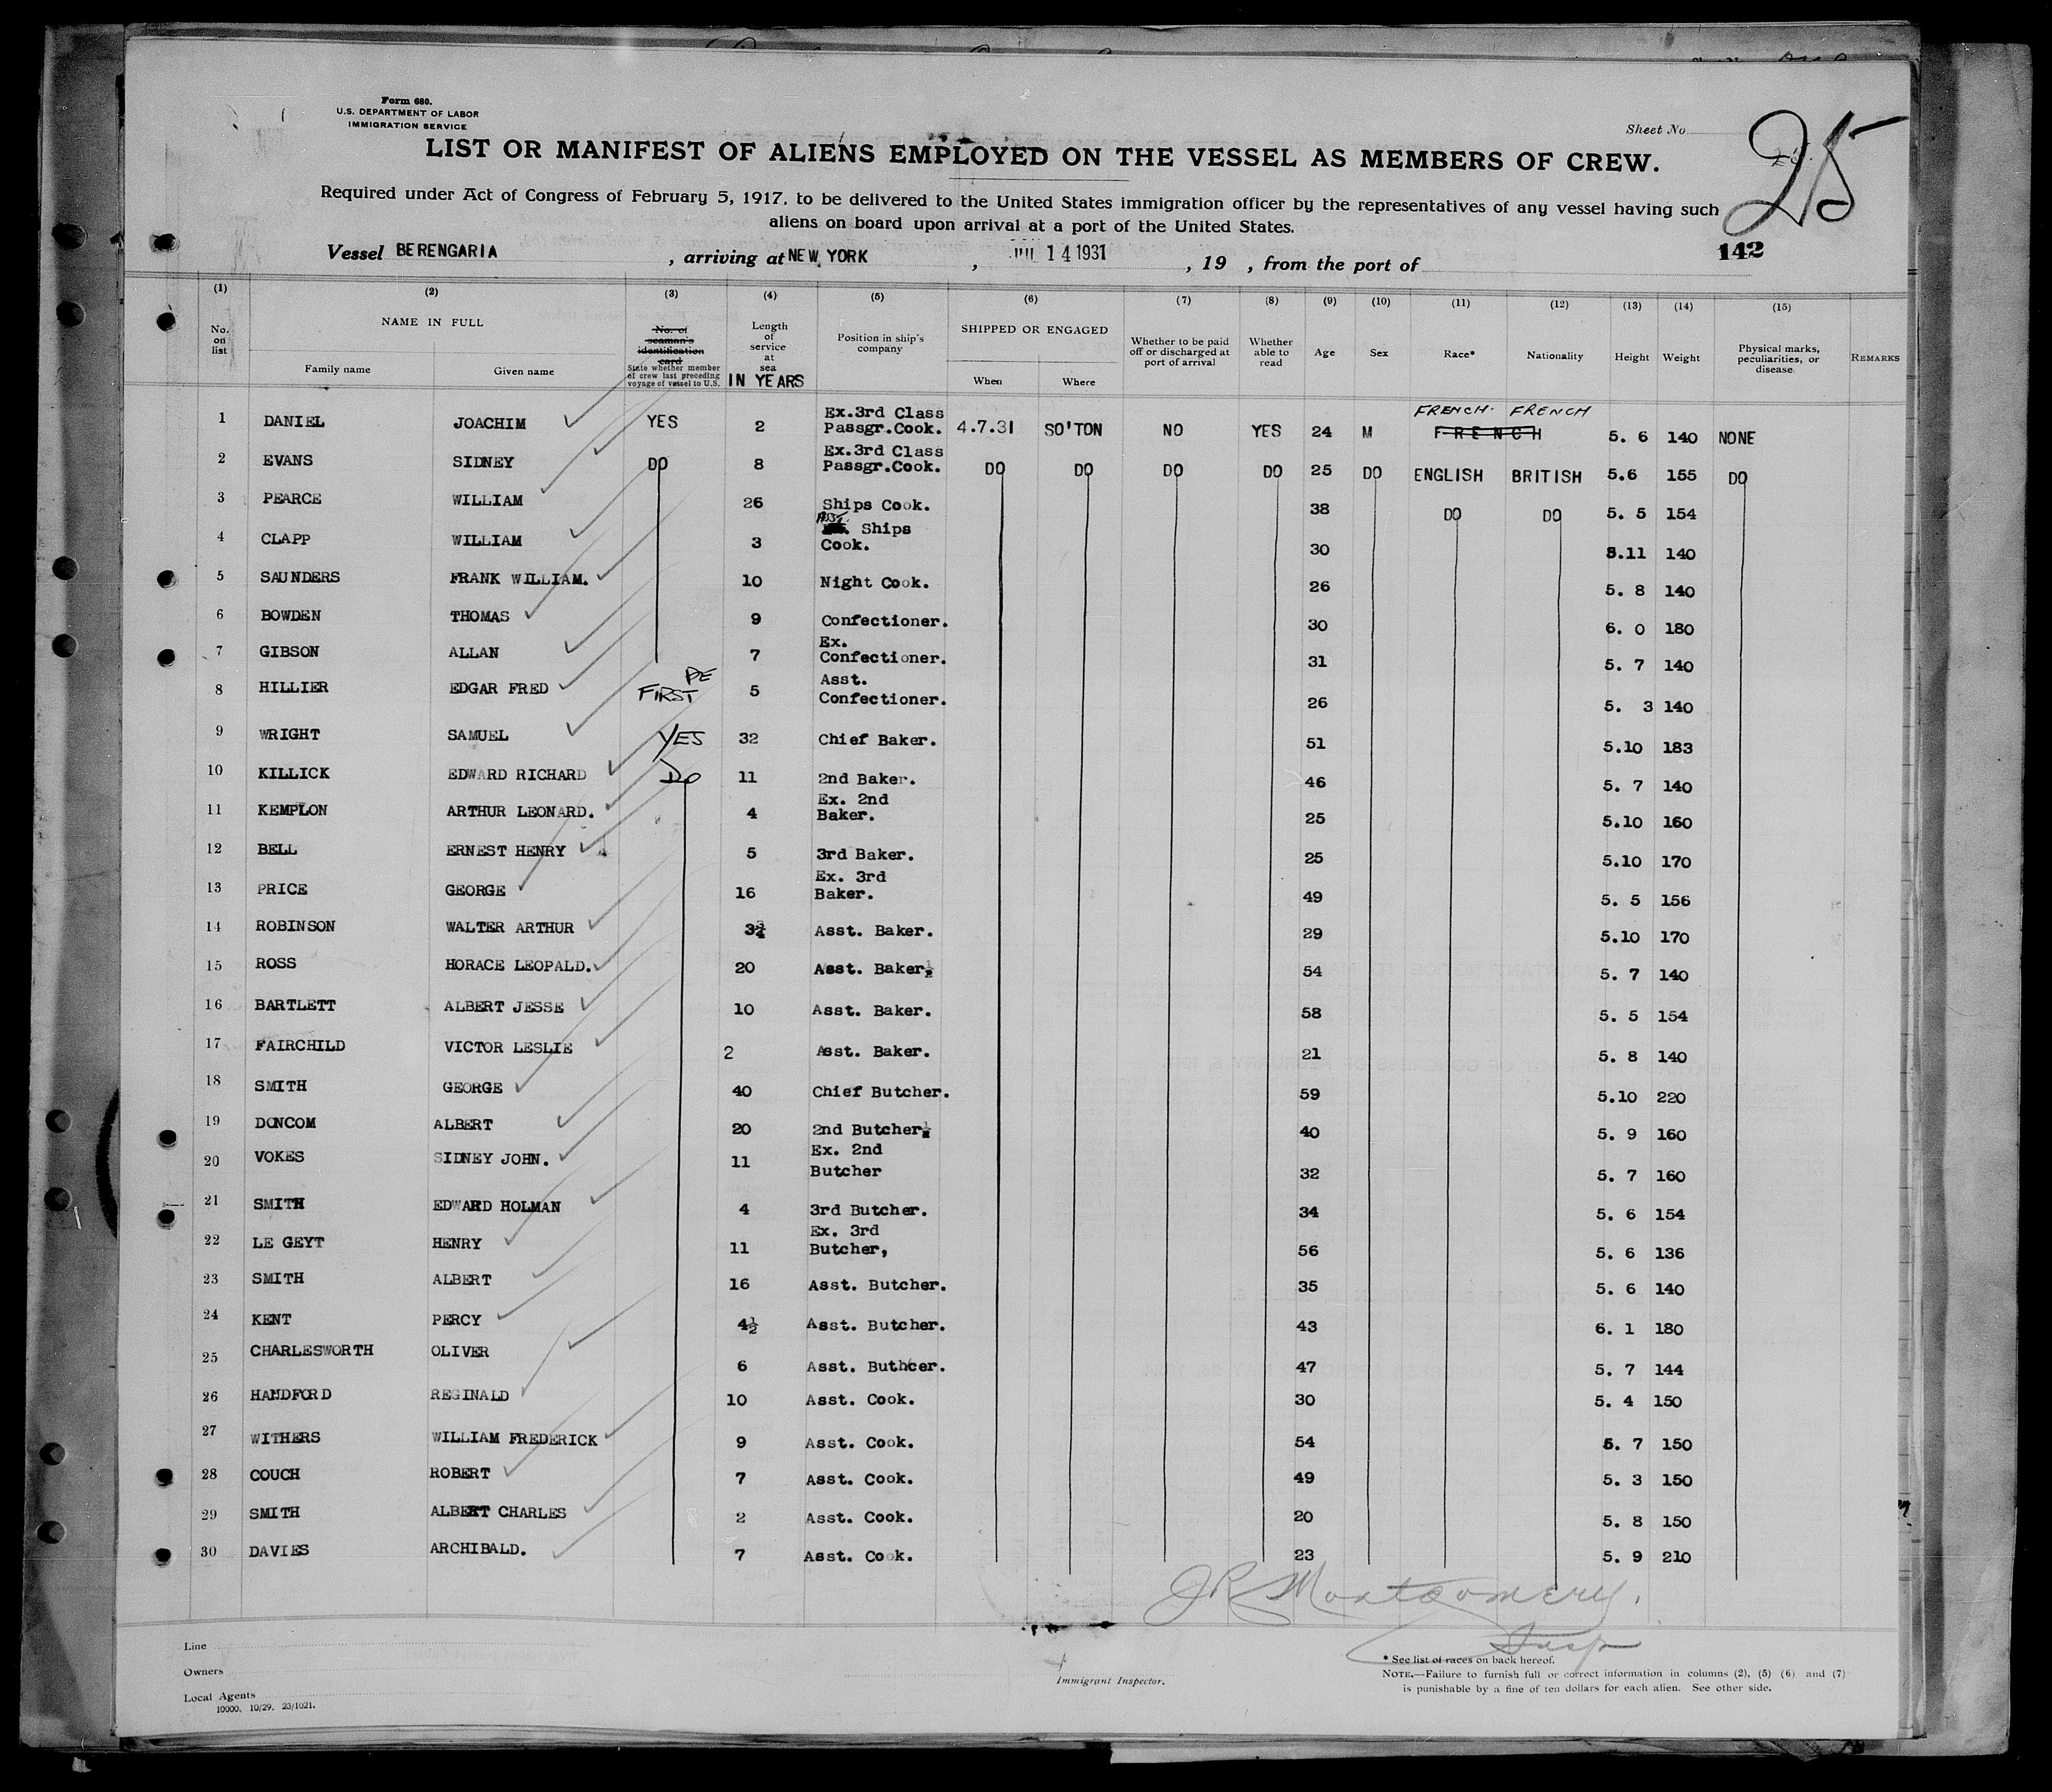 Form 680.
U.S. DEPARTMENT OF LABOR
IMMIGRATION SERVICE
Sheet No.
25
LIST OR MANIFEST OF ALIENS EMPLOYED ON THE VESSEL AS MEMBERS OF CREW.
Required under Act of Congress of February 5, 1917, to be delivered to the United States immigration officer by the representatives of any vessel having such
aliens on board upon arrival at a port of the United States.
142
Vessel BERENGARIA, arriving at NEW YORK, JUL 14 1931, 19 , from the port of
(1) (2) (3) (4) (5) (6) (7) (8) (9) (10) (11) (12) (13) (14) (15)
No. on list NAME IN FULL Family name Given name No. of seaman's identification card State whether member of crew last preceding voyage of vessel to U.S. Length of service at sea IN YEARS Position in ship's company SHIPPED OR ENGAGED When Where Whether to be paid off or discharged at port of arrival Whether able to read Age Sex Race* Nationality Height Weight Physical marks, peculiarities, or disease REMARKS
1 DANIEL JOACHIM YES 2 Ex.3rd Class Passgr.Cook. 4.7.31 SO'TON NO YES 24 M FRENCH FRENCH FRENCH 5. 6 140 NONE
2 EVANS SIDNEY DO 8 Ex.3rd Class Passgr.Cook. DO DO DO DO 25 DO ENGLISH BRITISH 5.6 155 DO
3 PEARCE WILLIAM 26 Ships Cook. 38 DO DO 5. 5 154
4 CLAPP WILLIAM 3 Asst. Ships Cook. 30 5.11 140
5 SAUNDERS FRANK WILLIAM. 10 Night Cook. 26 5. 8 140
6 BOWDEN THOMAS 9 Confectioner. 30 6. 0 180
7 GIBSON ALLAN 7 Ex. Confectioner. 31 5. 7 140
8 HILLIER EDGAR FRED FIRST 5 Asst. Confectioner. 26 5. 3 140
9 WRIGHT SAMUEL YES 32 Chief Baker. 51 5.10 183
10 KILLICK EDWARD RICHARD Do 11 2nd Baker. 46 5. 7 140
11 KEMPLON ARTHUR LEONARD. 4 Ex. 2nd Baker. 25 5.10 160
12 BELL ERNEST HENRY 5 3rd Baker. 25 5.10 170
13 PRICE GEORGE 16 Ex. 3rd Baker. 49 5. 5 156
14 ROBINSON WALTER ARTHUR 3¾ Asst. Baker. 29 5.10 170
15 ROSS HORACE LEOPALD. 20 Asst. Baker. 54 5. 7 140
16 BARTLETT ALBERT JESSE 10 Asst. Baker. 58 5. 5 154
17 FAIRCHILD VICTOR LESLIE 2 Asst. Baker. 21 5. 8 140
18 SMITH GEORGE 40 Chief Butcher. 59 5.10 220
19 DONCOM ALBERT 20 2nd Butcher. 40 5. 9 160
20 VOKES SIDNEY JOHN. 11 Ex. 2nd Butcher 32 5. 7 160
21 SMITH EDWARD HOLMAN 4 3rd Butcher. 34 5. 6 154
22 LE GEYT HENRY 11 Ex. 3rd Butcher, 56 5. 6 136
23 SMITH ALBERT 16 Asst. Butcher. 35 5. 6 140
24 KENT PERCY 4½ Asst. Butcher. 43 6. 1 180
25 CHARLESWORTH OLIVER 6 Asst. Buthcer. 47 5. 7 144
26 HANDFORD REGINALD 10 Asst. Cook. 30 5. 4 150
27 WITHERS WILLIAM FREDERICK 9 Asst. Cook. 54 5. 7 150
28 COUCH ROBERT 7 Asst. Cook. 49 5. 3 150
29 SMITH ALBERT CHARLES 2 Asst. Cook. 20 5. 8 150
30 DAVIES ARCHIBALD. 7 Asst. Cook. 23 5. 9 210
J R Montgomery.
Insp
Line
Owners
Local Agents
10000, 10/29. 23/1021.
Immigrant Inspector.
* See list of races on back hereof.
NOTE.—Failure to furnish full or correct information in columns (2), (5) (6) and (7)
is punishable by a fine of ten dollars for each alien. See other side.